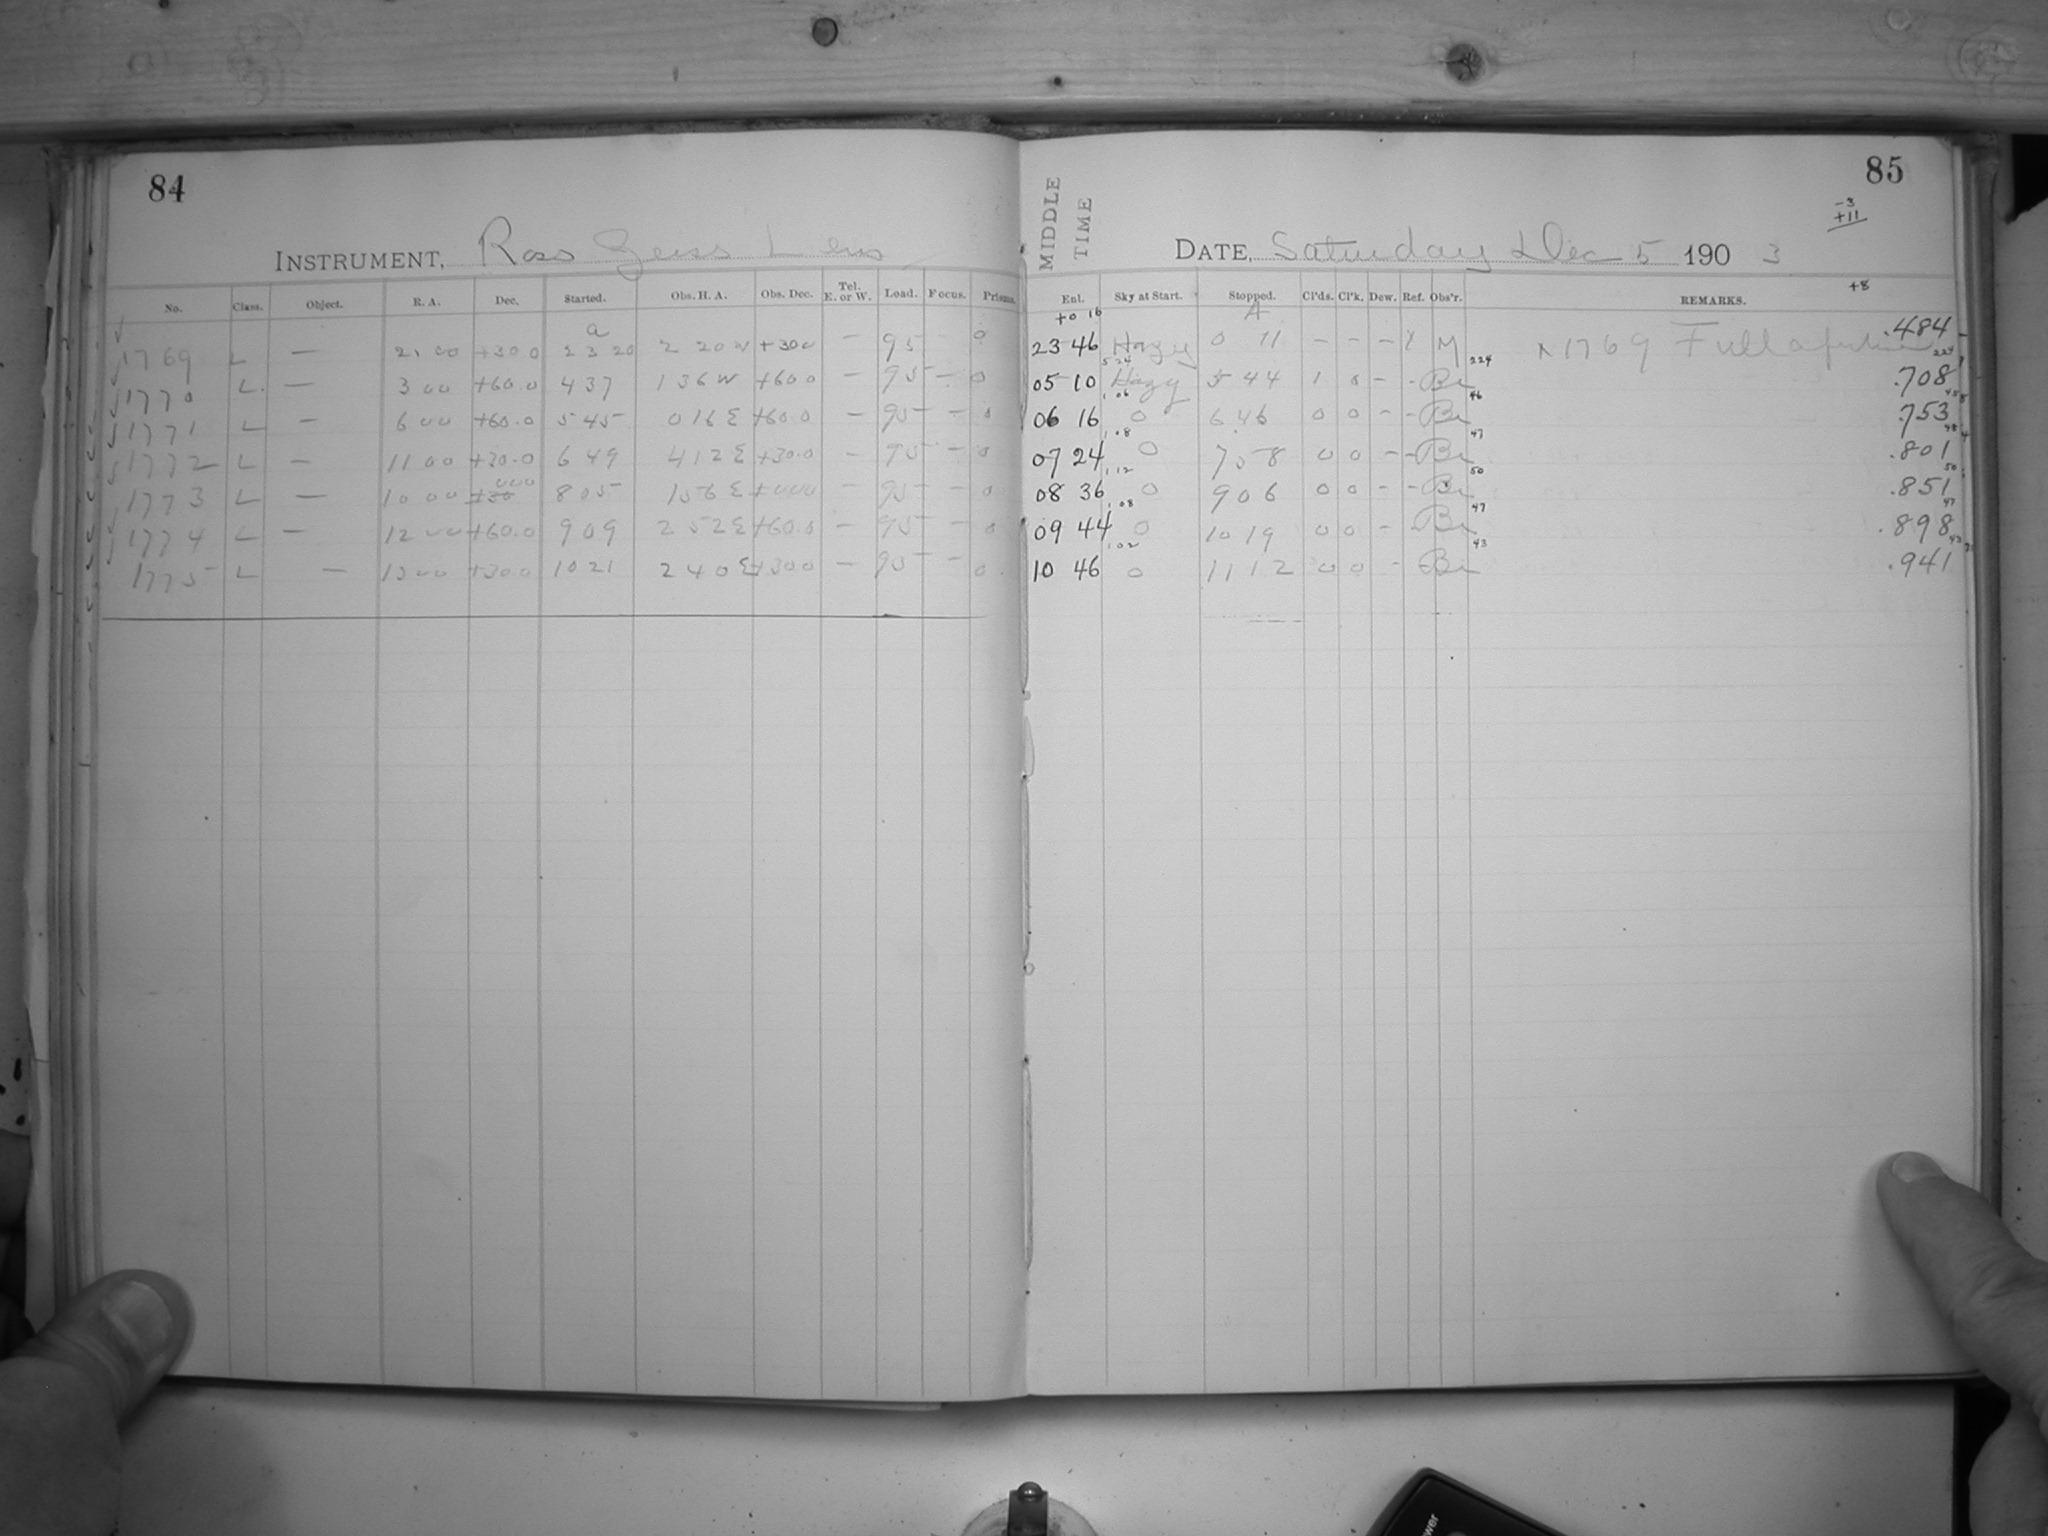 84
INSTRUMENT, Ross Zeiss Lens
No. Class. Object. R. A. Dec. Started. Obs. H. A. Obs. Dec. Tel. E. or W. Load. Focus. Prisms.
a
1769 L — 2 00 +30 0 23 20 2 20 W +30 0 — 95 — 0
1770 L — 3 00 +60.0 4 37 1 36 W +60 0 — 95 — 0
1771 L — 6 00 +60.0 5 45 0 16 E +60.0 — 95 — 0
1772 L — 11 00 +30.0 6 49 4 12 E +30.0 — 95 — 0
00 0
1773 L — 10 00 +30 8 05 1 56 E +00 0 — 95 — 0
1774 L — 12 00 +60.0 9 09 2 52 E +60.0 — 95 — 0
1775 L — 13 00 +30.0 10 21 2 40 E +30 0 — 95 — 0
85
-3
+11
MIDDLE TIME
DATE, Saturday Dec 5 1903
+8
Ent. Sky at Start. Stopped. Cl'ds. Cl'k. Dew. Ref. Obs'r. REMARKS.
+0 16 A
23 46 Hazy 0 11 – – – M 1769 Full aperture .484
5 24 224 224
05 10 Hazy 5 44 1 0 – - Br .708
1.06 46
06 16 0 6 46 0 0 - - Br .753
1.08 47
07 24 0 7 58 0 0 - - Br .801
1.12 50 50
08 36 0 9 06 0 0 - - Br .851
1.08 47 47
09 44 0 10 19 0 0 - Br .898
1.02 43
10 46 0 11 12 0 0 - Br .941